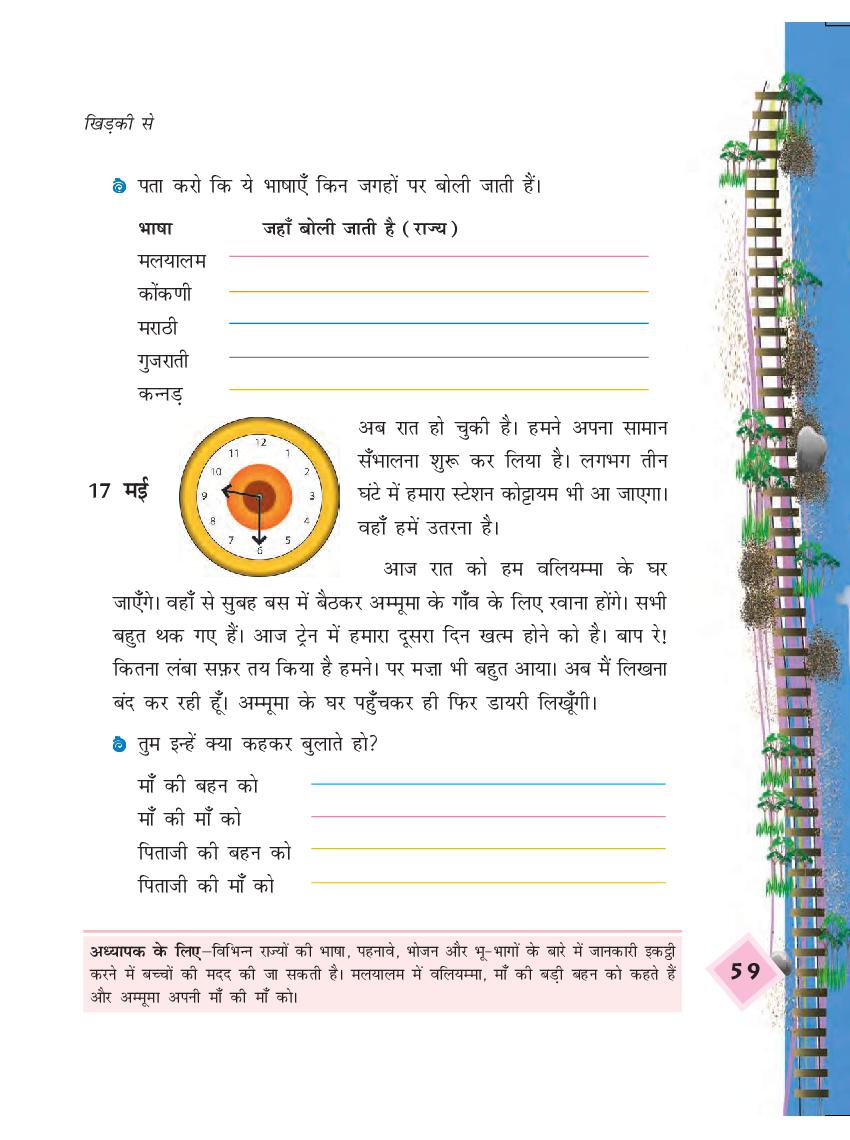 खिड़की से
पता करो कि ये भाषाएँ किन जगहों पर बोली जाती हैं।
भाषा जहाँ बोली जाती है ( राज्य )
मलयालम
कोंकणी
मराठी
गुजराती
कन्नड़
17 मई
12
11 1
10 2
9 3
8 4
7 5
6
अब रात हो चुकी है। हमने अपना सामान
सँभालना शुरू कर लिया है। लगभग तीन
घंटे में हमारा स्टेशन कोट्टायम भी आ जाएगा।
वहाँ हमें उतरना है।
आज रात को हम वलियम्मा के घर
जाएँगे। वहाँ से सुबह बस में बैठकर अम्मूमा के गाँव के लिए रवाना होंगे। सभी
बहुत थक गए हैं। आज ट्रेन में हमारा दूसरा दिन खत्म होने को है। बाप रे!
कितना लंबा सफ़र तय किया है हमने। पर मज़ा भी बहुत आया। अब मैं लिखना
बंद कर रही हूँ। अम्मूमा के घर पहुँचकर ही फिर डायरी लिखूँगी।
तुम इन्हें क्या कहकर बुलाते हो?
माँ की बहन को
माँ की माँ को
पिताजी की बहन को
पिताजी की माँ को
अध्यापक के लिए–विभिन्न राज्यों की भाषा, पहनावे, भोजन और भू-भागों के बारे में जानकारी इकट्ठी
करने में बच्चों की मदद की जा सकती है। मलयालम में वलियम्मा, माँ की बड़ी बहन को कहते हैं
और अम्मूमा अपनी माँ की माँ को।
59